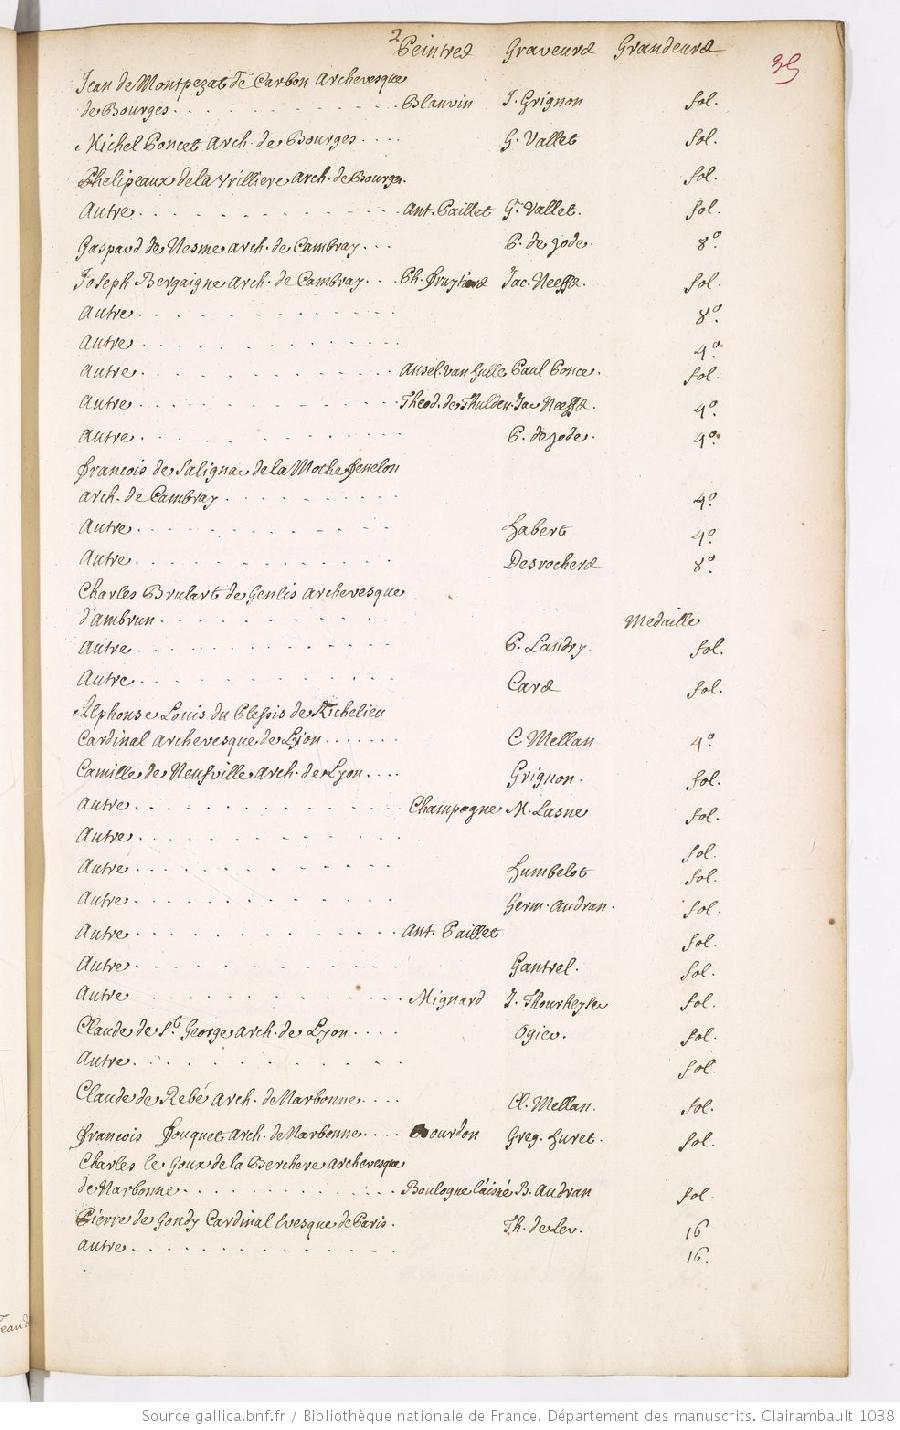 2
Peintres Graveurs Grandeurs
35
Jean de Montpezat de Carbon Archevesque
de Bourges . . . . . Blanvin J. Grignon fol.
Michel Poncet Arch. de Bourges . . . . G. Vallet fol.
Phelipeaux de la Vrilliere Arch. de Bourges. fol.
Autre . . . . . Ant. Paillet G. Vallet. fol.
Gaspard de Nesme arch. de Cambray . . . P. de jode 8º
Joseph Bergaigne arch. de Cambray . . . Ph. fruytiers Jac. Neeffs. fol.
Autre . . . . . 8º.
Autre . . . . . 4º.
Autre . . . . . Ansel. van hulle Paul Ponce. fol.
Autre . . . . . Theod. de Thulden. Jac Neeffs. 4º.
Autre . . . . . P. de jode. 4º.
francois de Salignac de la Mothe fenelon
arch. de Cambray . . . . . 4º.
Autre . . . . . habert 4º.
Autre . . . . . Desrochers 8º.
Charles Brulart de Genlis Archevesque
d'ambrun . . . . . Medaille
Autre . . . . . P. Landry. fol.
Autre . . . . . Cars fol.
Alphonse Louis du Plessis de Richelieu
Cardinal Archevesque de Lyon . . . . . C Mellan 4º
Camille de Neufville arch. de Lyon . . . . Grignon. fol.
Autre . . . . . Champagne M. Lasne fol.
Autre . . . . . fol.
Autre . . . . . humbelot fol.
Autre . . . . . Germ. Audran. fol.
Autre . . . . . Ant. Paillet fol.
Autre . . . . . Gantrel. fol.
Autre . . . . . Mignard J. Thourneyse fol.
Claude de St. George arch. de Lyon . . . . Ogier. fol.
Autre . . . . . fol.
Claude de Rebé Arch. de Narbonne . . . . Cl. Mellan. fol.
francois fouquet Arch. de Narbonne . . . . Bourdon Greg. huret. fol.
Charles le Goux de la Berchere archevesque
de Narbonne . . . . . Boulogne l'ainé B. Audran fol.
Pierre de Gondy Cardinal Evesque de Paris. Th. de Leu. 16
Autre . . . . . 16.
Source gallica.bnf.fr / Bibliothèque nationale de France. Département des manuscrits. Clairambault 1038